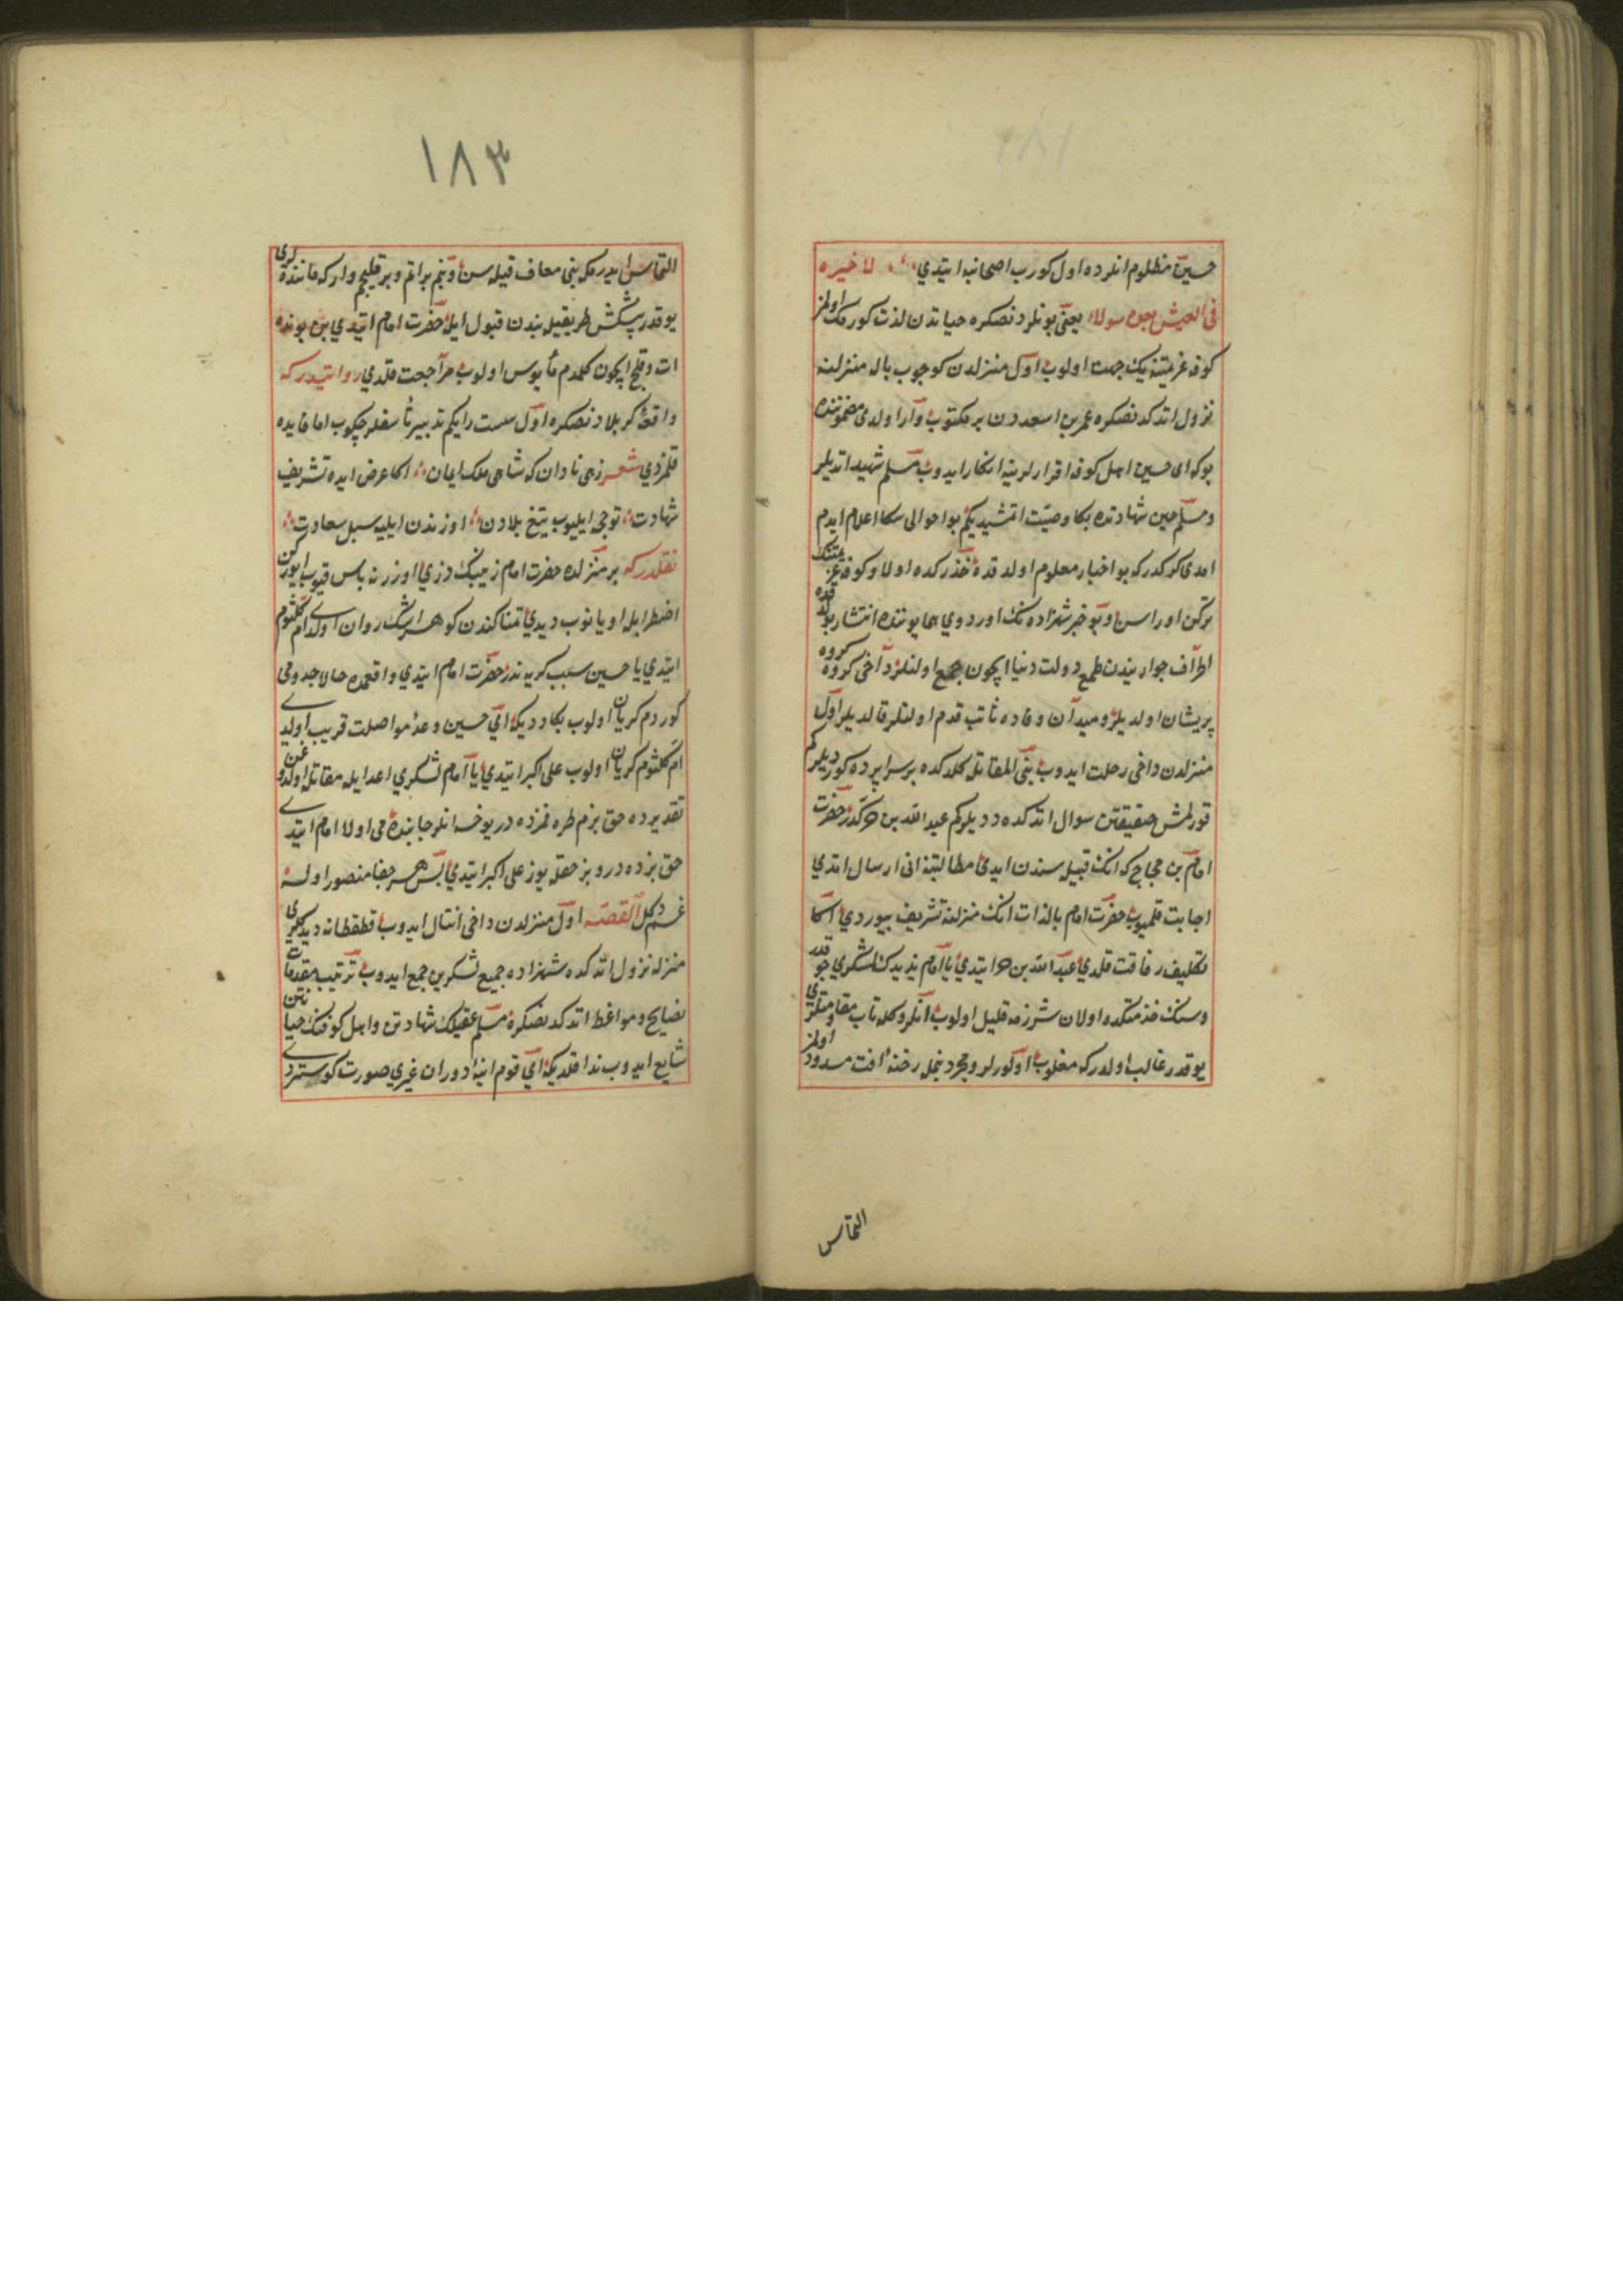 حسین مظلوم انلرده اول کورب اصحابنه ایتدي لا خیره
فی العیش بعد هولاء یعنی بونلردنصکره حیاتدن لذت کورمک اولمز
کوفه عزمیتنه یکجهت اولوب اول منزلدن کوچوب باله منزلنه
نزول اتدکدنصکره عمر بن اسعددن بر مکتوب وارد اولدی مضموننده
بوکه ای حسین اهل کوفه اقرارلرینه انکار ایدوب مسلم شهید اتدیلر
ومسلم حین شهادتده بکا وصیت اتمشیدیکم بو احوالی سکا اعلام ایدم
امدی کرکدرکه بو اخبار معلوم اولدقده حذر کده اولا و کوفه عزمیتنک
ترکن اوراسن وبو خبر شهزاده نک اوردوي همایوننده انتشار بولدقده
اطراف جواریندن طمع دولت دنیا ایچون جمع اولنلر دآخی کروه کروه
پریشان اولدیلر ومیدان وفاده ثابت قدم اولنلر قالدیلر اول
منزلدن داخی رحلت ایدوب بنی المقاتل کلدکده بر سراپرده کوردیلر کم
قورلمش حقیقتن سوال اتدکده ددیلرکم عبد الله بن حر کدر حضرت
امام بن حجاج که انک قبیله سندن ایدی مطالبتنه انی ارسال اتدي
اجابت قلمیوب حضرت امام بالذات انک منزلنه تشریف بیوردي اکا
تکلیف رفاقت قلدي عبد الله بن حر ایتدي یا امام یزیدک لشکري چوقدر
وسنک خذمتکده اولان شرزمه قلیل اولوب انکروکله تاب مقاومتلری
یوقدر غالب اولدرکه مغلوب اولورلر ومجرد بنمله رخنه افت مسدود اولمز
التماس
١٨٣
التماس ایدرمکه بنی معاف قیله سن وبنم بر اتم وبر قلیجم وارکه ماننده لری
یوقدر پیشکش طریقیله بندن قبول ایله حضرت امام ایتدي بن بونده
ات وقلیج ایچون کلمدم مأیوس اولوب مراجعت قلدي روایتدرکه
واقعه کربلادنصکره اول سست رایکم تدبیر تأسفلر چکوب اما فایده
قلمزدي شعر زهی نادان که شاهی ملک ایمان اکا عرض ایده تشریف
شهادت توجی ایلیوب تیغ بلادن اوزندن ایلیه سبل سعادت
نقلدرکه بر منزلده حضرت امام زینبک دزي اوزرنه باس قیوب ایورکن
اضطرابله اویانوب دیدي تمناکندن کوهر اشک روان اولدی ام کلثوم
ایتدي یا حسین سبب کریه ندر حضرت امام ایتدي واقعمده حالا جدومی
کوردم کریان اولوب بکا ددیکه ای حسین وعده مواصلت قریب اولدی
ام کلثوم کریان اولوب علی اکبر ایتدي یا امام لشکري اعدا ایله مقاتله اولندوغن
تقدیرده حق بزم طره فمزده در یوخسه انلر جابنده می اولا امام ایتدی
حق بزده در و بز حقله یوز علی اکبر ایتدي پس هر جفا منصور اولسه
غم دکل القصه اول منزلدن داخی انتال ایدوب قطقطانه دیدکلری
منزله نزول اتدکده شهزاده جمیع لشکرین جمع ایدوب ترتیب مقدمات
نصایح ومواعظ اتدکدنصکره مسلم عقیلک شهادتن واهل کوفنک خیانتن
شایع ایدوب ندا قلدیکه ای قوم اینه دوران غیري صورت کوستردی